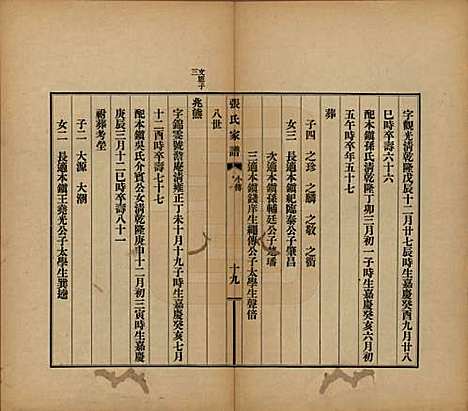 字觀光清乾隆戊辰十二月廿七辰時生嘉慶癸酉九月廿八
巳時卒壽六十六
配本鎮孫氏清乾隆丁卯三月初一子時生嘉慶癸亥六月初
五午時卒年五十七
葬
子四 之珍 之麟 之敬 之衡
女三 長適本鎮紀臨泰公子肇昌
次適本鎮孫輔廷公子
三適本鎮錢庠生繩傳公子太學生聲倍
張氏家譜
十九
八世
兆熊
文照子
三
字錦雯號啓庵清雍正丁未十月十九子時生嘉慶癸亥七月
十二酉時卒壽七十七
配本鎮吳氏介賓公女清乾隆庚申十二月初三寅時生嘉慶
庚辰三月十二巳時卒壽八十一
祔葬考塋
子二 大源 大潮
女二 長適本鎮王堯光公子太學生巽